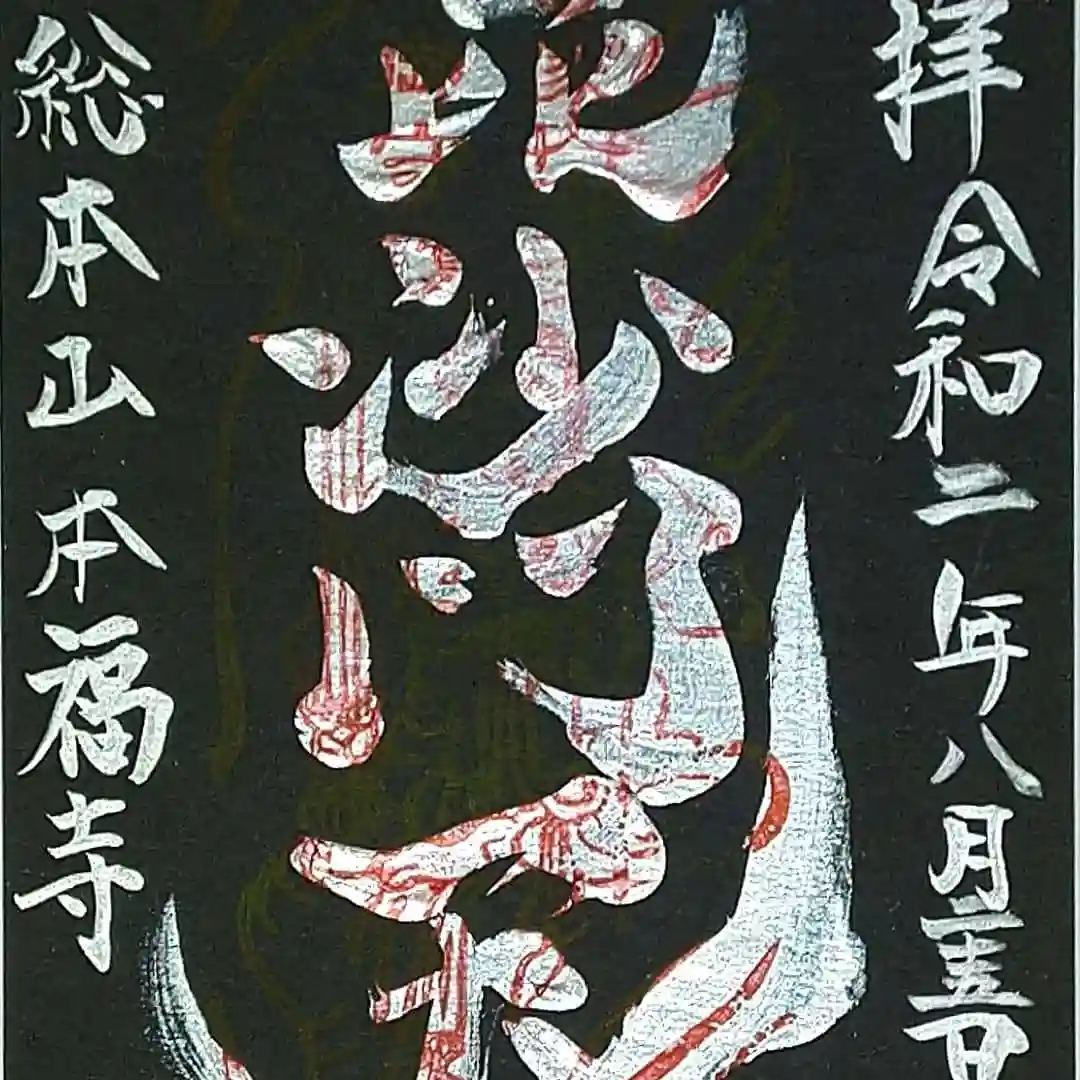 拝 令和二年八月日
毘沙門天
総本山 本福寺